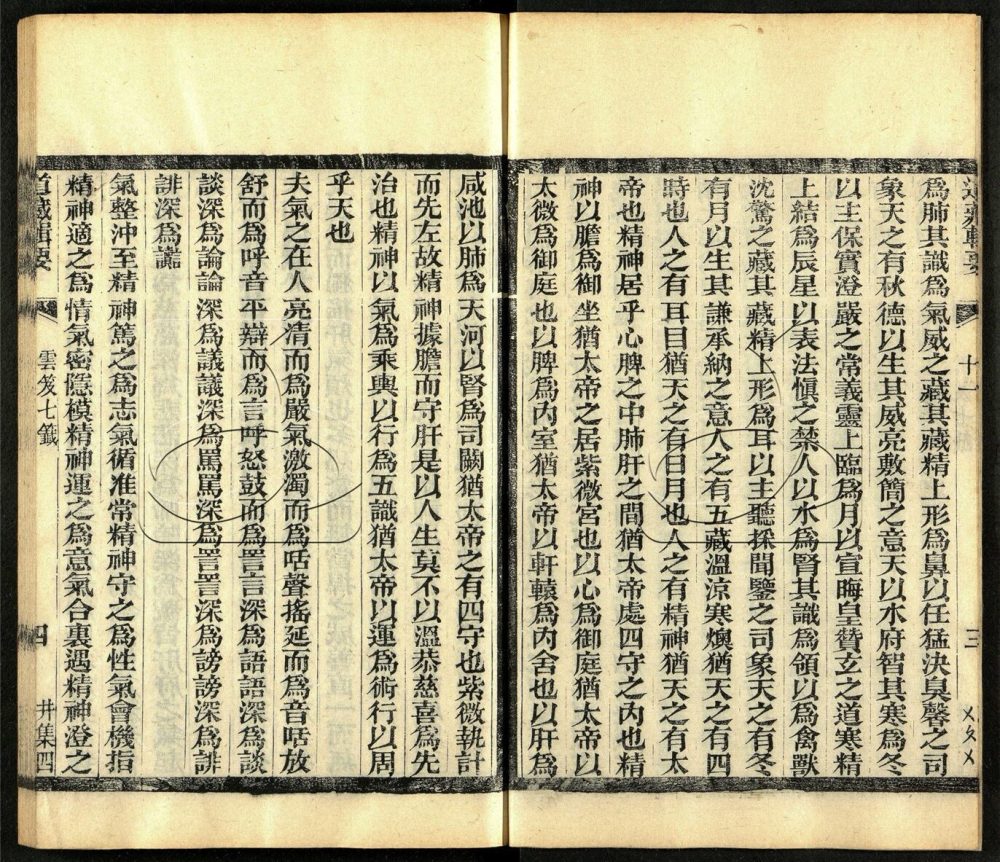 為肺其識為氣威之藏其藏精上形為鼻以任猛決臭馨之司
象天之有秋德以生其威亮敷簡之意天以水府智其寒為冬
以主保實澄嚴之常義靈上臨為月以宣晦皇贊玄之道寒精
上結為辰星以表法愼之禁人以水為腎其識為領以為禽獸
沈驚之藏其藏精上形為耳以主聽採聞鑒之司象天之有冬
有月以生其謙承納之意人之有五藏溫涼寒燠猶天之有四
時也人之有耳目猶天之有日月也人之有精神猶天之有太
帝也精神居乎心脾之中肺肝之間猶太帝處四守之內也精
神以膽為御坐猶太帝之居紫微宮也以心為御庭猶太帝以
太微為御庭也以脾為內室猶太帝以軒轅為內舍也以肝為
咸池以肺為天河以腎為司闕猶太帝之有四守也紫微執計
而先左故精神據膽而守肝是以人生莫不以溫恭慈喜為先
治也精神以氣為乘輿以行為五識猶太帝以運為術行以周
乎天也
夫氣之在人亮清而為嚴氣激濁而為咶聲搖延而為音咶放
舒而為呼音平辯而為言呼怒鼓而為詈言深為語語深為談
談深為論論深為議議深為罵罵深為詈詈深為謗謗深為誹
誹深為讟
氣整沖至精神篤之為志氣循准常精神守之為性氣會機指
精神適之為情氣密隱模精神運之為意氣合裏遇精神澄之
道藏輯要 雲笈七籤 四 井集四